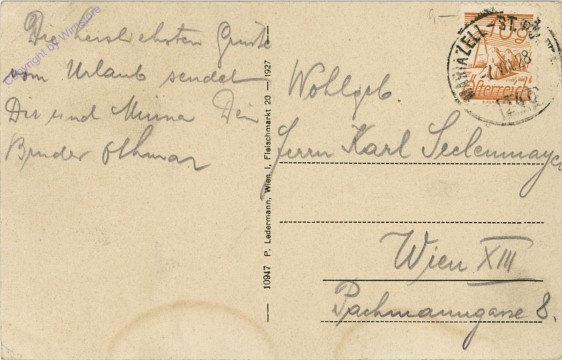 Die herzlichsten Grüße
vom Urlaub sendet
Dir und Minna Dein
Bruder Othmar
Copyright by Wimstore
10947 P. Ledermann, Wien I, Fleischmarkt 20 — 1927
MARIAZELL–ST. PÖLTEN
Österreich
Wohlgeb.
Herrn Karl Seelenmayer
Wien XIII
Pachmanngasse 8.